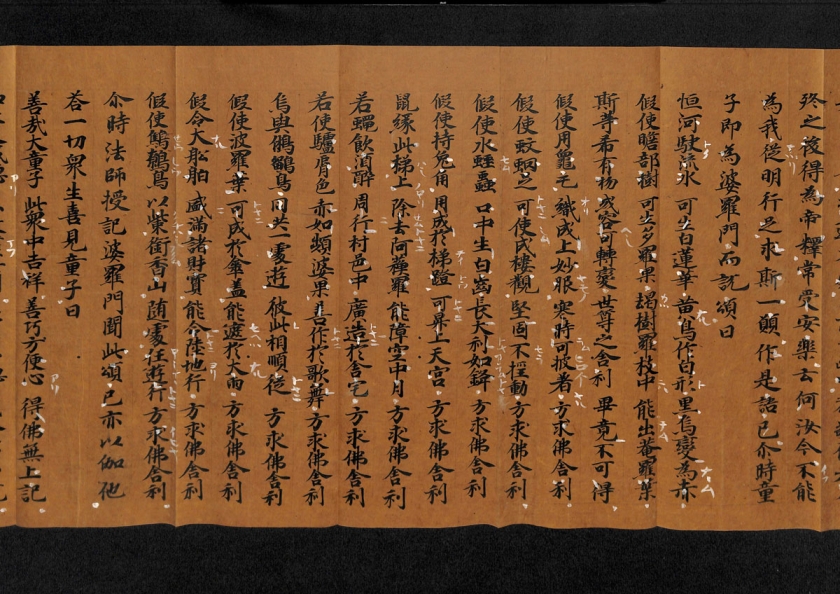 終之後得為帝釋常受安樂云何汝今不能
為我從明行足求斯一願作是語已尒時童
子即為婆羅門而說頌曰
恒河駛流水 可生白蓮華 黃鳥作白形 黑烏變為赤
假使瞻部樹 可生多羅果 朅樹羅枝中 能出菴羅葉
斯等希有物 或容可轉變 世尊之舍利 畢竟不可得
假使用龜毛 織成上妙服 寒時可披著 方求佛舍利
假使蚊蚋足 可使成樓觀 堅固不搖動 方求佛舍利
假使水蛭蟲 口中生白齒 長大利如鋒 方求佛舍利
假使持兔角 用成於梯蹬 可昇上天宮 方求佛舍利
鼠緣此梯上 除去阿蘇羅 能障空中月 方求佛舍利
若蠅飲酒醉 周行村邑中 廣造於舍宅 方求佛舍利
若使驢脣色 赤如頻婆果 善作於歌舞 方求佛舍利
烏與鵂鶹鳥 同共一處遊 彼此相順從 方求佛舍利
假使波羅葉 可成於傘蓋 能遮於大雨 方求佛舍利
假令大舩舶 盛滿諸財寶 能令陸地行 方求佛舍利
假使鷦鷯鳥 以觜銜香山 隨處任遊行 方求佛舍利
尒時法師授記婆羅門聞此頌已亦以伽他
荅一切衆生喜見童子曰
善哉大童子 此衆中吉祥 善巧方便心 得佛無上記